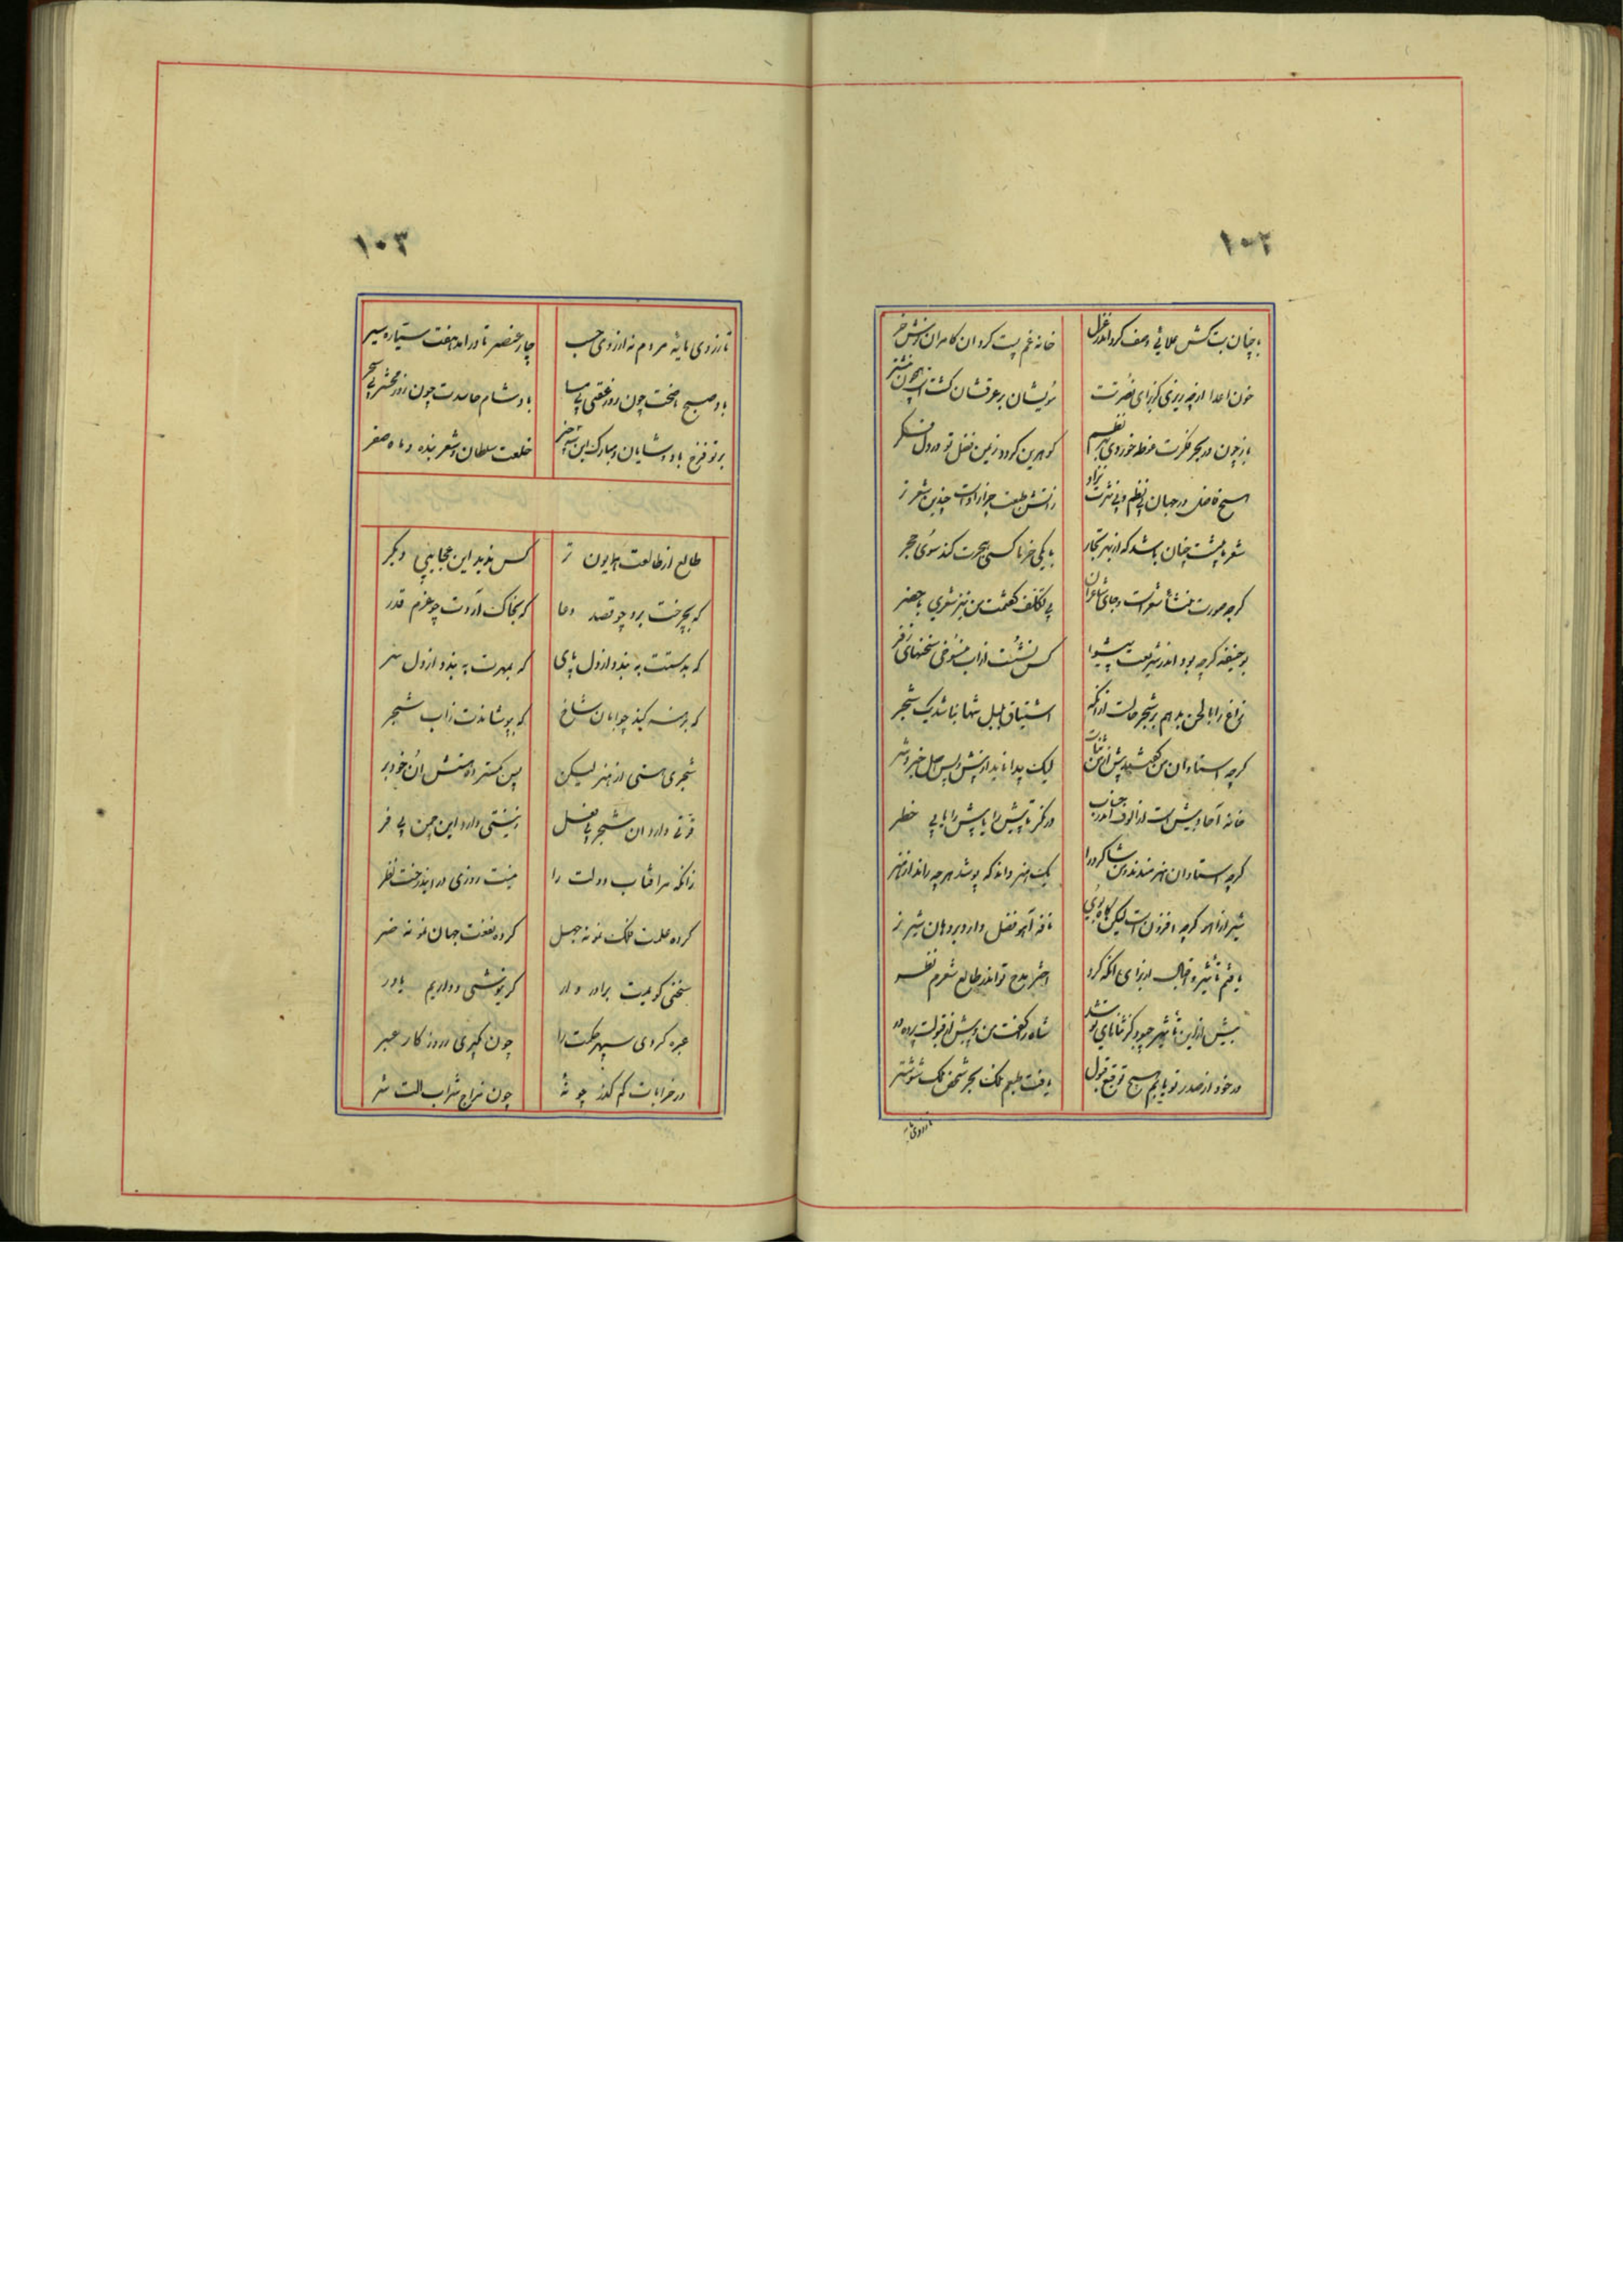 ١٠٢
با چنان بت کش علائی وصف کرد اندر غزل خانه غم پست کرد ان کامران
خون اعدا از چه ریزی کز برای نصرتت مویشان بر عرقشان گشت است همچون نیشتر
باز چون در بحر فکرت غوطه خوردی بهر نظم گوهرین گردد زمین فضل تو در دل
هیچ فاضل در جهان بی نظم و بی نثرت نزاد زانش طبعت چو زادست چندین شعر تر
شعر ما پیشت چنان باشد که از بهر تجار با یکی خرما کسی هجرت کند سوی هجر
گرچه صورت منشأ شعرست و جای شاعران بی تکلف گفتمت من نیز شعری ما حضر
بوحنیفه گرچه بود اندر شریعت پیشوا کس نشست از آب منسوخی سخنهای زفر
زاغ را با لحن بد هم بر شجر جالست ازانکه اشتیاق بلبل تنها نباشد یک شجر
گرچه استادان من گفتند پیش از من ثنات لیک پیدا ناید از پیش و پس اصل خیر و شر
خانه آحاد پیش ست از الوف اندر حساب در نگر تا پیش را با پس را یابی خطر
گرچه استادان هنرمندند من شاگرد را یک هنر داند که پوشد هر چه ماند از هنر
شیر از آهو گرچه افزونست لیکن گاه بوی نافه آهو فضل دارد بر دهان شیر نر
یافتم تأثیر اقبال از برای آنکه کرد اختر مدح تو اندر طالع شعرم نظر
بیش ازین تا چهر چبود کز ثنایای تو شد شاه را گفت من پیش از قبولت پرده در
در خور از صدر تو یابم هیچ توقیع قبول یافت طبعم ملک بحر شخص ملک شوشتر
١٠٣
تا زروی مایه مردم نه از روی حسب چار عنصر مادر امد هفت سیاره پدر
باد صبح بختت چون روز عقبی بی مسا باد شام حاسدت چون روز محشر بی سحر
بر تو فرخ باد و شایان و مبارک این سه چیز خلعت سلطان و شعر بنده و ماه صفر
طالع از طالعت همایون تر کس ندید این عجایبی دیگر
که بچرخت برد چو قصد دعا که بخاک آردت چو عزم قدر
که بدستت به بندد از دل پای که بمهرت به بندد از دل سر
که برهنه کند چو ابان شاخ که بپوشاندت زآب شجر
شجری هستی از هنر لیکن پس کمتر دوستش ان خود بر
قوتی دارد ان شجر بی فضل زینتی دارد این چمن بی فر
زانکه مر افتاب دولت را نیست روزی در ایندرخت نظر
کرده علت فلک نمونه جهل کرده نفعت جهان نمونه ضر
سخنی گویمت برادر وار گر نیوشی و داریم باور
عبره کردی سپهر حکمت را چون نگیری ز روزگار عبر
در خرابات کم گذر چو نه چون مزاج شراب الت شر